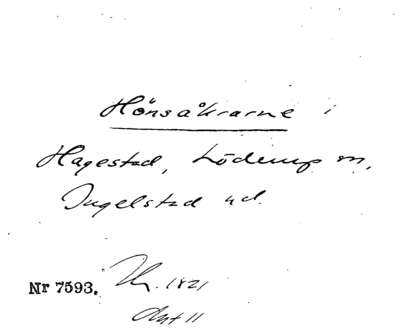 Hönsåkrarne i
Hagestad, Löderup sn,
Ingelstad hd.
Nr 7593. 1821
Akt 11